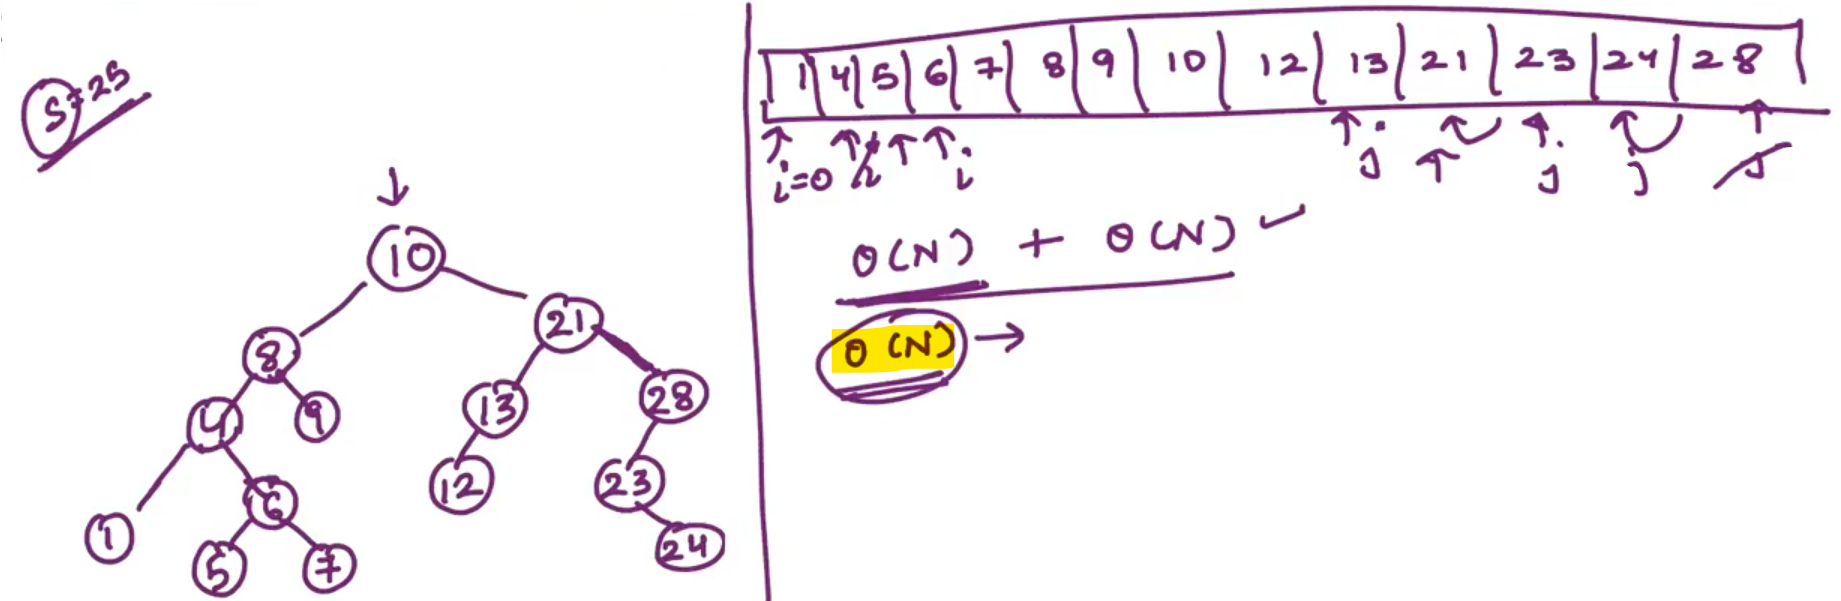 S=25
10
8 21
4 9 13 28
1 6 12 23
5 7 24
1 4 5 6 7 8 9 10 12 13 21 23 24 28
i=0 i i j j j j
O(N) + O(N) ✓
O(N) →